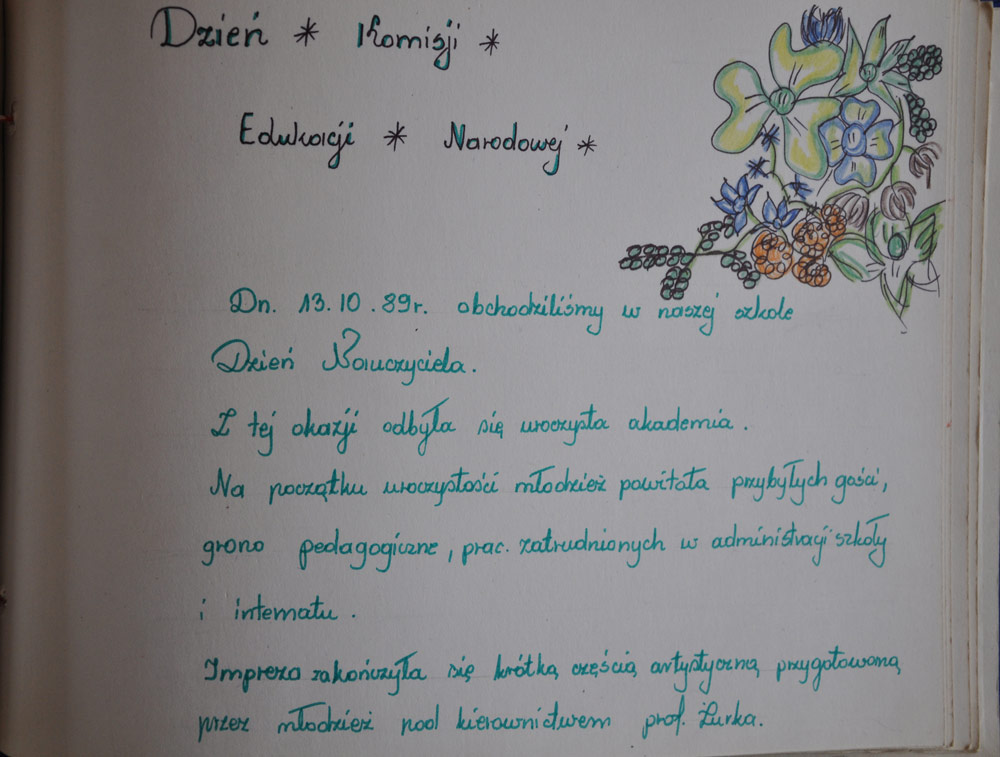 Dzień * Komisji *
Edukacji * Narodowej *
Dn. 13.10.89r. obchodziliśmy w naszej szkole
Dzień Nauczyciela.
Z tej okazji odbyła się uroczysta akademia.
Na początku uroczystości młodzież powitała przybyłych gości,
grono pedagogiczne, prac. zatrudnionych w administracji szkoły
i internatu.
Impreza zakończyła się krótką częścią artystyczną przygotowaną
przez młodzież pod kierownictwem prof. Żurka.